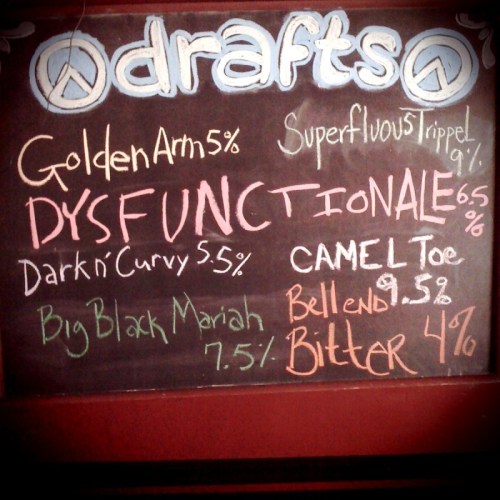 drafts
Golden Arm 5%
Superfluous Trippel
9%
DYSFUNCTIONALE 6.5
%
Dark n' Curvy 5.5%
CAMEL Toe
9.5%
Big Black Mariah
7.5%
Bell end
Bitter 4%